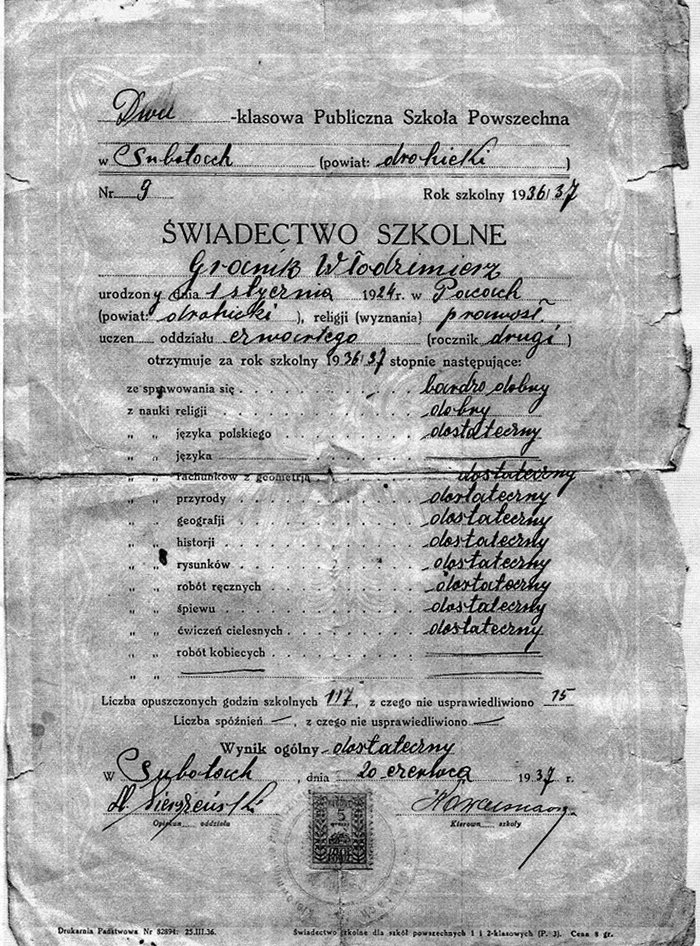 Dwu -klasowa Publiczna Szkoła Powszechna
w Subotach (powiat: drohicki )
Nr. 9 Rok szkolny 1936/37
ŚWIADECTWO SZKOLNE
Granik Włodzimierz
urodzony dnia 1 stycznia 1924 r. w Pacach
(powiat: drohicki ), religji (wyznania) prawosł.
uczeń oddziału czwartego (rocznik drugi )
otrzymuje za rok szkolny 1936/37 stopnie następujące:
ze sprawowania się bardzo dobry
z nauki religji dobry
" " języka polskiego dostateczny
" " języka
" " rachunków z geometrją dostateczny
" " przyrody dostateczny
" " geografji dostateczny
" " historji dostateczny
" " rysunków dostateczny
" " robót ręcznych dostateczny
" " śpiewu dostateczny
" " ćwiczeń cielesnych dostateczny
" " robót kobiecych
" "
Liczba opuszczonych godzin szkolnych 117, z czego nie usprawiedliwiono 15
Liczba spóźnień —, z czego nie usprawiedliwiono —
Wynik ogólny dostateczny
W Subotach, dnia 20 czerwca 1937 r.
Opiekun oddziału Kierown. szkoły
5
Drukarnia Państwowa Nr 82894. 25.III.36. Świadectwo szkolne dla szkół powszechnych 1 i 2-klasowych (P. 3). Cena 8 gr.